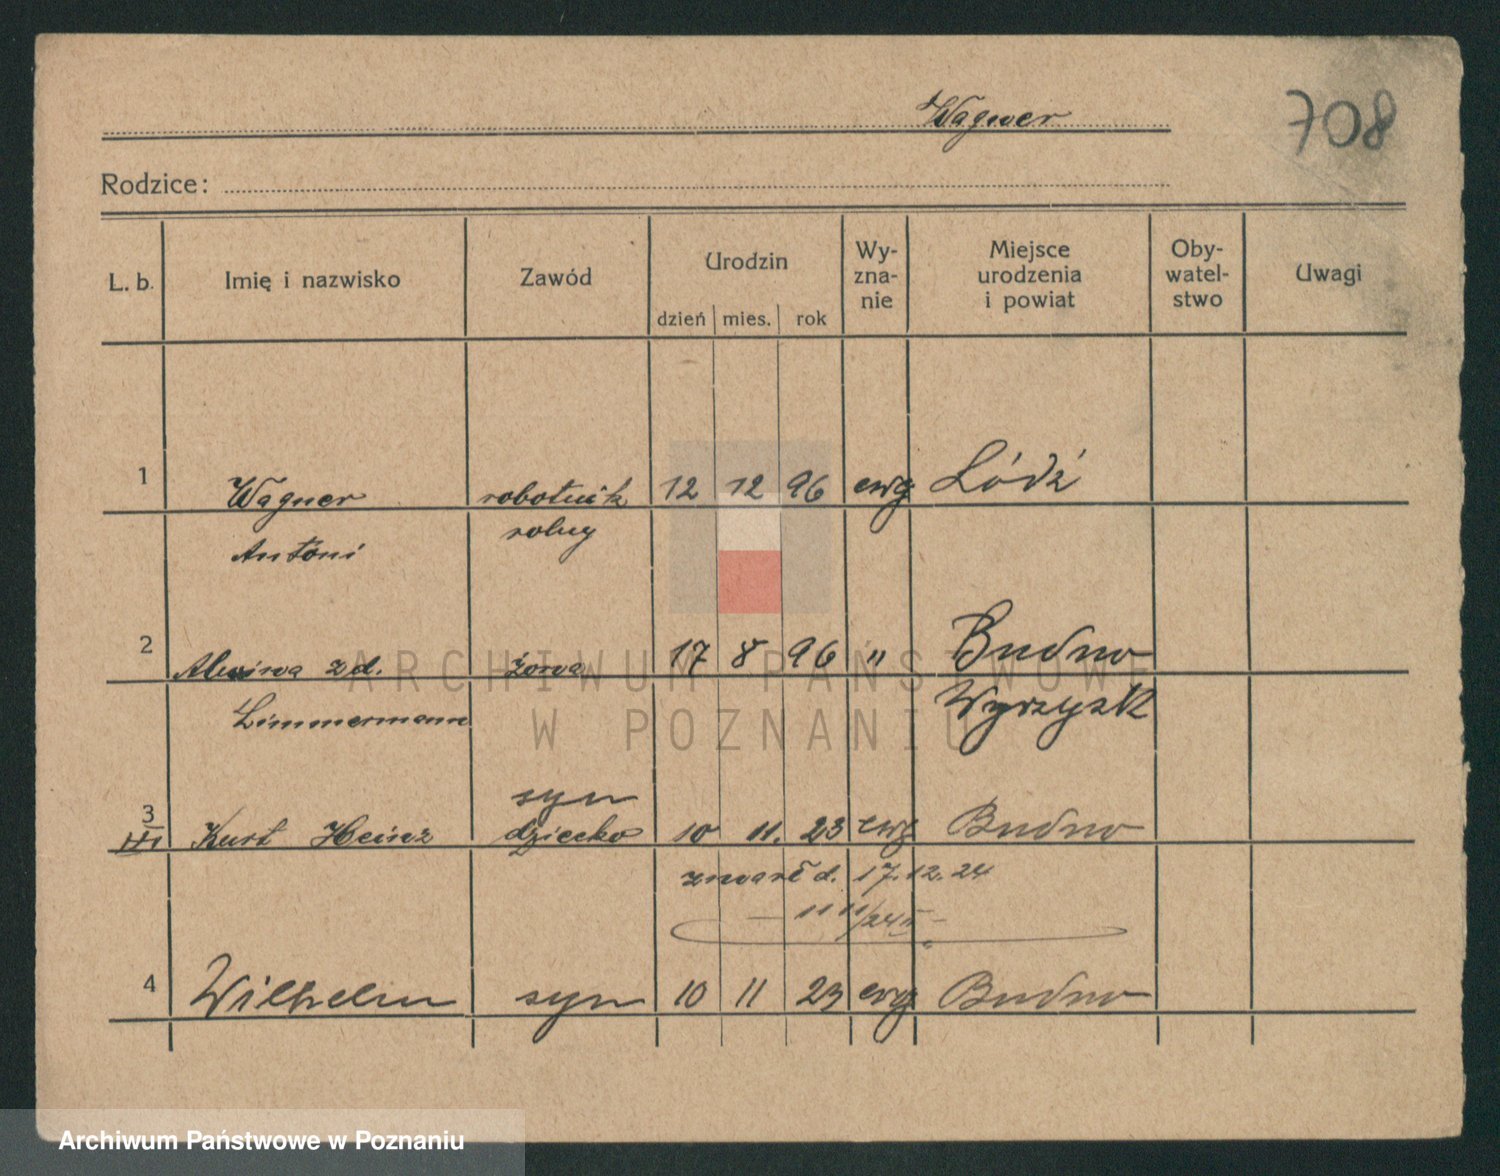 Wagner
708
Rodzice:
L. b. Imię i nazwisko Zawód Urodzin Wy- zna- nie Miejsce urodzenia i powiat Oby- watel- stwo Uwagi
dzień mies. rok
1 Wagner robotnik 12 12 96 ewg Łódź
Antoni rolny
2 Alwina zd. żona 17 8 96 " Budno
Zimmermann Wyrzysk
syn
3 Kurt Heinz dziecko 10 11. 23 ewg Budno
zmarł d. 17.12.24
4 Wilhelm syn 10 11 23 ewg Budno
ARCHIWUM PAŃSTWOWE
W POZNANIU
Archiwum Państwowe w Poznaniu